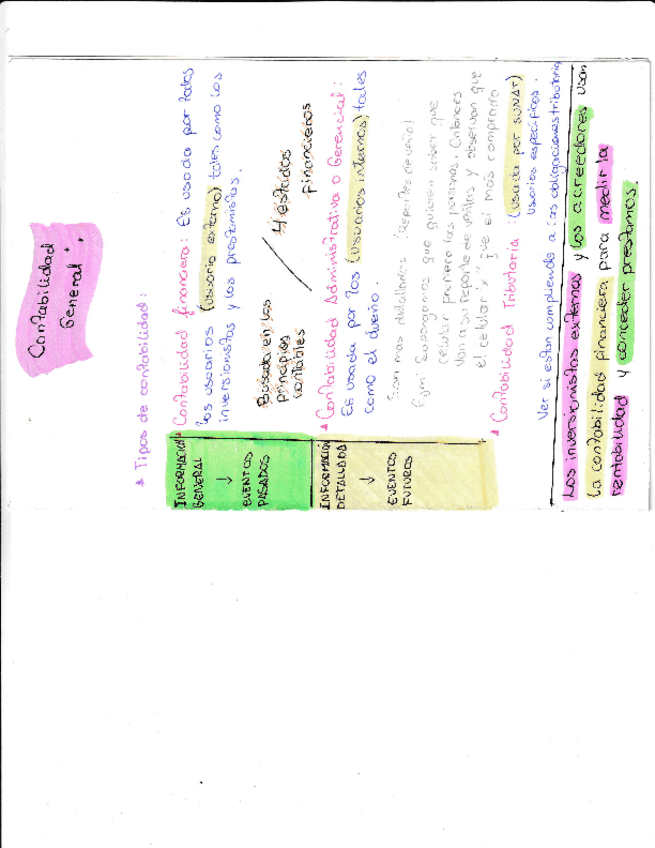 Contabilidad
General.
* Tipos de contabilidad:
INFORMACION
GENERAL
↓
EVENTOS
PASADOS
* Contabilidad financiera: Es usada por todos
los usuarios (usuario externo) tales como los
inversionistas y los prestamistas.
Basada en los
principios
contables
4 estados
financieros
INFORMACION
DETALLADA
↓
EVENTOS
FUTUROS
* Contabilidad Administrativa o Gerencial:
Es usada por los (usuarios internos) tales
como el dueño.
Son mas detallados
Ejm: Supongamos que quieren saber que
celular prefiere las personas. Entonces
Van a su reporte de ventas y observan que
el celular "x" fue el más comprado
* Contabilidad Tributaria: (usada por SUNAT)
usuarios específicos.
Ver si estan cumpliendo a las obligaciones tributaria
Los inversionistas externos y los acreedores usan
la contabilidad financiera para medir la
rentabilidad y conceder prestamos.